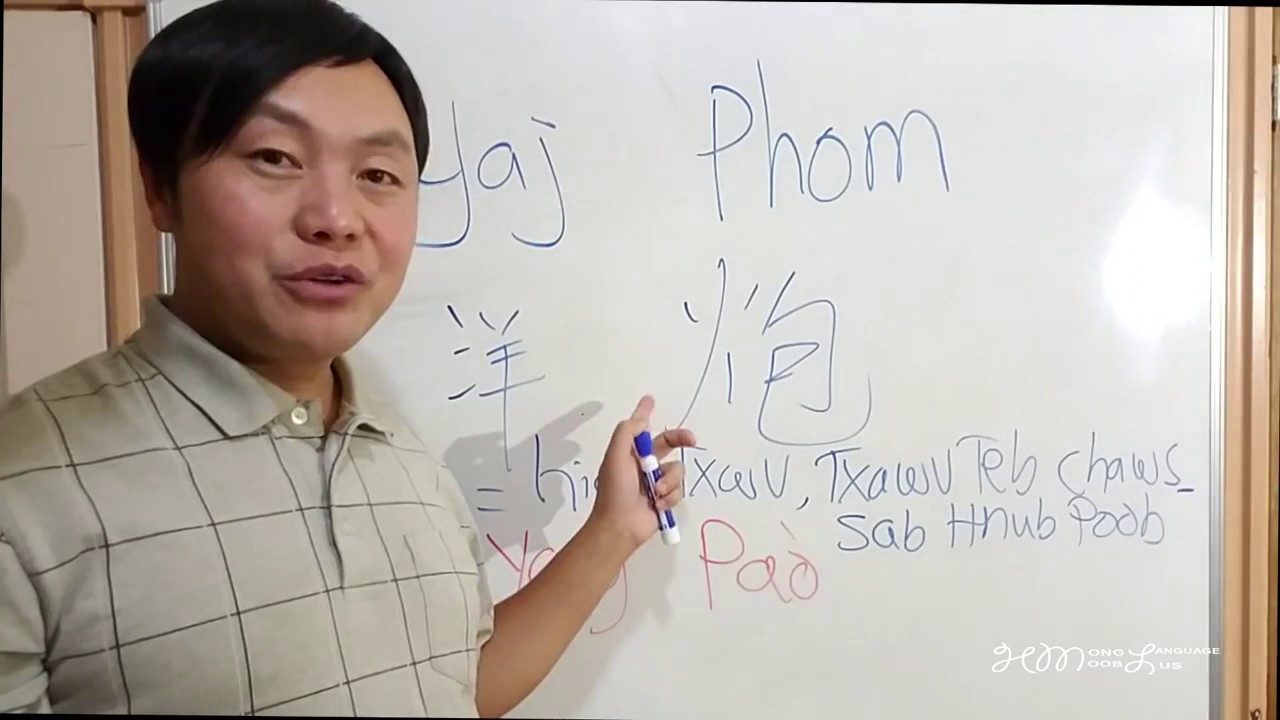 Yaj Phom
洋 炮
= Txawv, Txawv Teb chaws
Sab Hnub Poob
Paò
HMONG LANGUAGE
HMOOB LUS